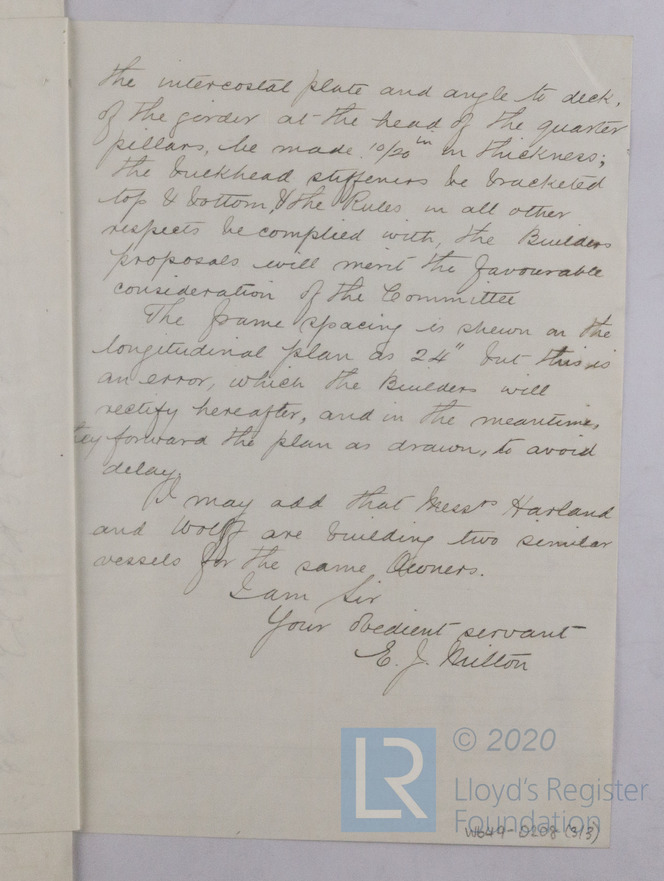 the intercostal plate and angle to deck,
of the girder at the head of the quarter
pillars, be made 10/20 in in thickness;
the bulkhead stiffeners be bracketed
top & bottom, & the Rules in all other
respects be complied with, the Builders
proposals will merit the favourable
consideration of the Committee
The frame spacing is shewn on the
longitudinal plan as 24" but this is
an error, which the Builders will
rectify hereafter, and in the meantime,
they forward the plan as drawn, to avoid
delay.
I may add that Messrs Harland
and Wolff are building two similar
vessels for the same Owners.
I am Sir
Your obedient servant
E. J. Milton
© 2020
LR
Lloyd's Register
Foundation
W649-0208 (3/3)